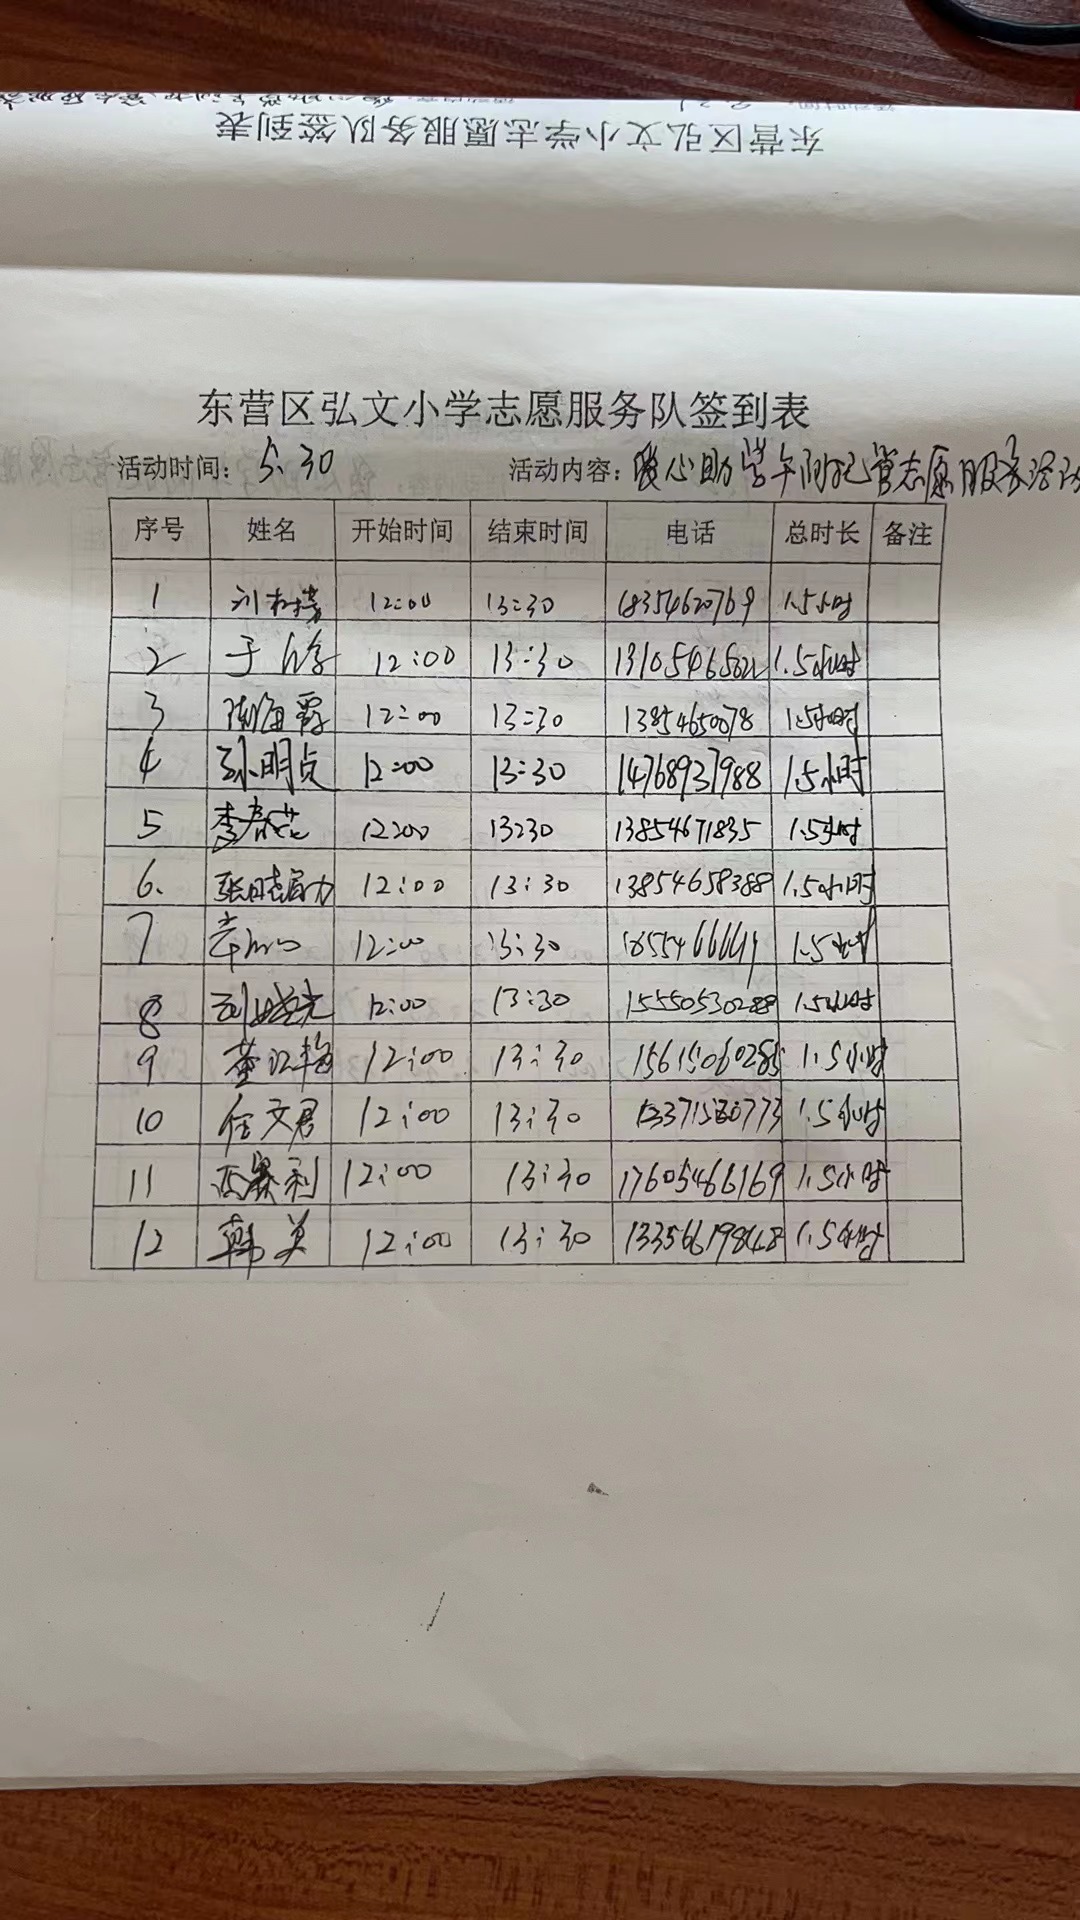 东营区弘文小学志愿服务队签到表
东营区弘文小学志愿服务队签到表
活动时间：5.30 活动内容：暖心助学午间托管志愿服务活动
序号 姓名 开始时间 结束时间 电话 总时长 备注
1 12:00 13:30 18354620769 1.5小时
2 于 12:00 13:30 1.5小时
3 陈海霞 12:00 13:30 13854650078 1.5小时
4 孙明贞 12:00 13:30 14768937988 1.5小时
5 李春花 12:00 13:30 13854671835 1.5小时
6. 张 12:00 13:30 13854658388 1.5小时
7 12:00 13:30 1.5小时
8 刘 12:00 13:30 15550530288 1.5小时
9 董江梅 12:00 13:30 15615060285 1.5小时
10 任文君 12:00 13:30 1.5小时
11 利 12:00 13:30 17605466169 1.5小时
12 韩美 12:00 13:30 13356619848 1.5小时